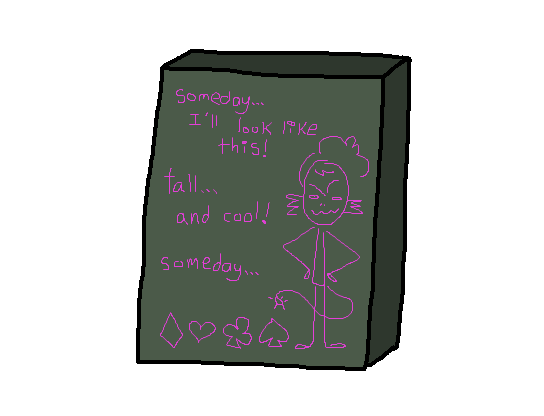 someday...
I'll look like
this!
tall...
and cool!
someday...